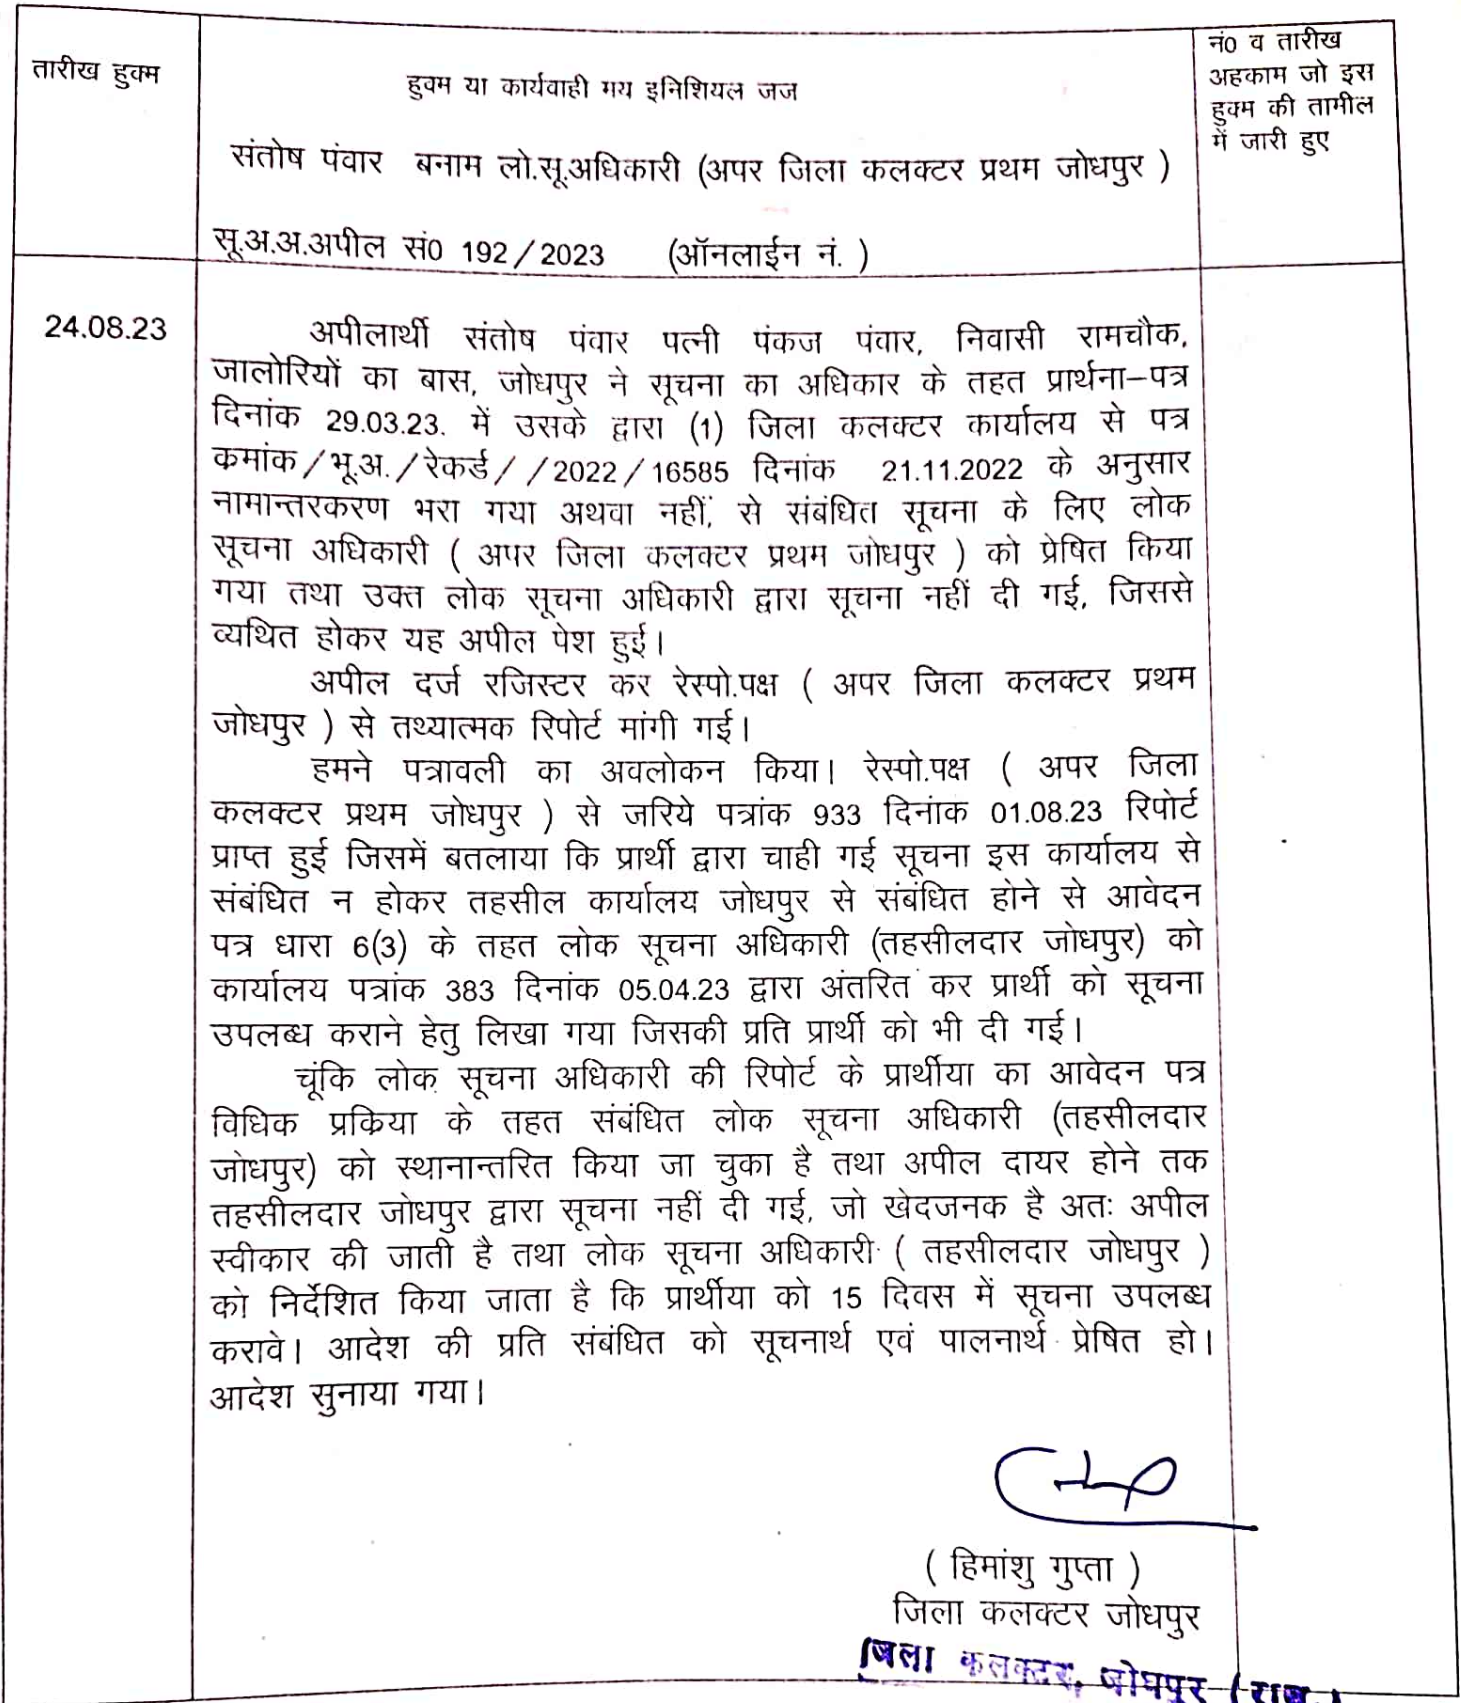 तारीख हुक्म
हुक्म या कार्यवाही मय इनिशियल जज
नं0 व तारीख
अहकाम जो इस
हुक्म की तामील
में जारी हुए
संतोष पंवार बनाम लो.सू.अधिकारी (अपर जिला कलक्टर प्रथम जोधपुर )
सू.अ.अ.अपील सं0 192/2023 (ऑनलाईन नं. )
24.08.23
अपीलार्थी संतोष पंवार पत्नी पंकज पंवार, निवासी रामचौक,
जालोरियों का बास, जोधपुर ने सूचना का अधिकार के तहत प्रार्थना–पत्र
दिनांक 29.03.23. में उसके द्वारा (1) जिला कलक्टर कार्यालय से पत्र
कमांक/भू.अ./रेकर्ड/ /2022/16585 दिनांक 21.11.2022 के अनुसार
नामान्तरकरण भरा गया अथवा नहीं, से संबंधित सूचना के लिए लोक
सूचना अधिकारी ( अपर जिला कलक्टर प्रथम जोधपुर ) को प्रेषित किया
गया तथा उक्त लोक सूचना अधिकारी द्वारा सूचना नहीं दी गई, जिससे
व्यथित होकर यह अपील पेश हुई।
अपील दर्ज रजिस्टर कर रेस्पो.पक्ष ( अपर जिला कलक्टर प्रथम
जोधपुर ) से तथ्यात्मक रिपोर्ट मांगी गई।
हमने पत्रावली का अवलोकन किया। रेस्पो.पक्ष ( अपर जिला
कलक्टर प्रथम जोधपुर ) से जरिये पत्रांक 933 दिनांक 01.08.23 रिपोर्ट
प्राप्त हुई जिसमें बतलाया कि प्रार्थी द्वारा चाही गई सूचना इस कार्यालय से
संबंधित न होकर तहसील कार्यालय जोधपुर से संबंधित होने से आवेदन
पत्र धारा 6(3) के तहत लोक सूचना अधिकारी (तहसीलदार जोधपुर) को
कार्यालय पत्रांक 383 दिनांक 05.04.23 द्वारा अंतरित कर प्रार्थी को सूचना
उपलब्ध कराने हेतु लिखा गया जिसकी प्रति प्रार्थी को भी दी गई।
चूंकि लोक सूचना अधिकारी की रिपोर्ट के प्रार्थीया का आवेदन पत्र
विधिक प्रकिया के तहत संबंधित लोक सूचना अधिकारी (तहसीलदार
जोधपुर) को स्थानान्तरित किया जा चुका है तथा अपील दायर होने तक
तहसीलदार जोधपुर द्वारा सूचना नहीं दी गई, जो खेदजनक है अतः अपील
स्वीकार की जाती है तथा लोक सूचना अधिकारी ( तहसीलदार जोधपुर )
को निर्देशित किया जाता है कि प्रार्थीया को 15 दिवस में सूचना उपलब्ध
करावे। आदेश की प्रति संबंधित को सूचनार्थ एवं पालनार्थ प्रेषित हो।
आदेश सुनाया गया।
( हिमांशु गुप्ता )
जिला कलक्टर जोधपुर
जिला कलक्टर, जोधपुर (राज.)